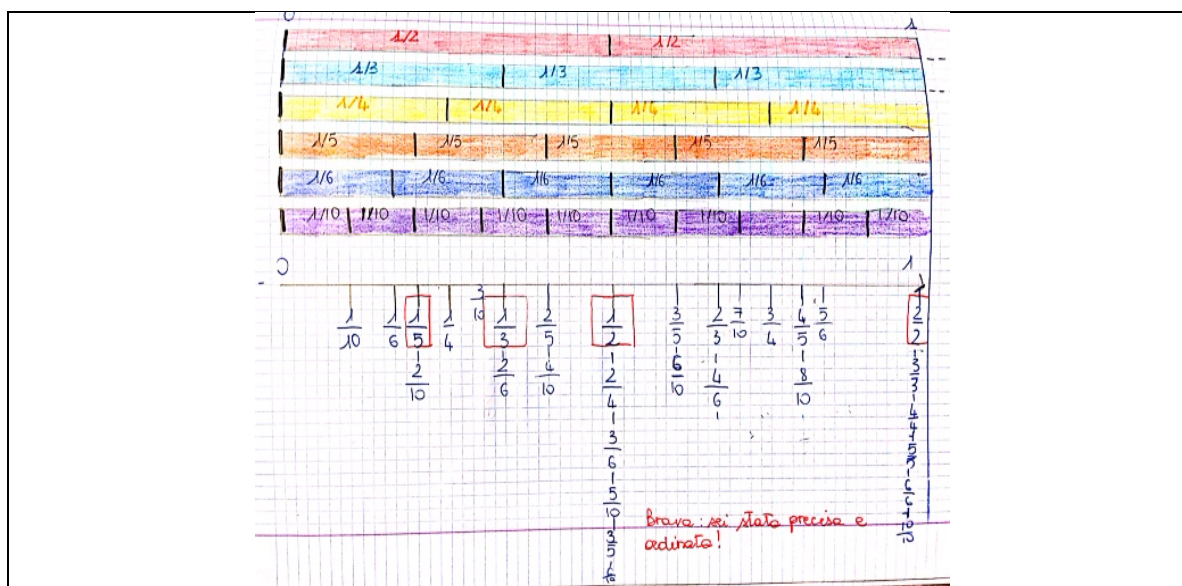 0 1
1/2 1/2
1/3 1/3 1/3
1/4 1/4 1/4 1/4
1/5 1/5 1/5 1/5 1/5
1/6 1/6 1/6 1/6 1/6 1/6
1/10 1/10 1/10 1/10 1/10 1/10 1/10 1/10 1/10
0 1
1/10 1/6 1/5 1/4 3/10 1/3 2/5 1/2 3/5 2/3 7/10 3/4 4/5 5/6 2/2
2/10 2/6 4/10 2/4 6/10 4/6 8/10 3/3
3/6 4/4
5/10 5/5
3/5 6/6
10/10
Brava: sei stata precisa e
ordinata!